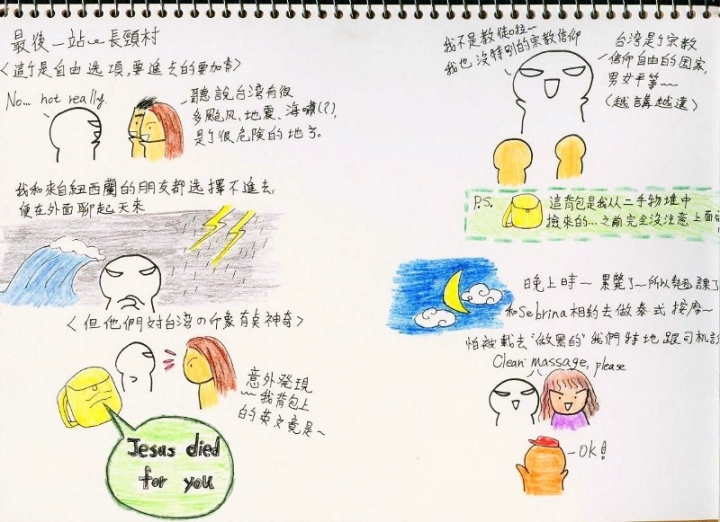 最後一站~長頸村
<這个是自由选項,要進去的要加索>
No... not really.
聽說台湾有很
多颱风、地震、海嘯(?),
是个很危險的地方。
我和來自紐西蘭的朋友都选擇不進去,
便在外面聊起天來
<但他們対台湾の印象有奌神奇>
意外発現
我背包上
的英文竟是~
Jesus died
for you
我不是教徒啦~
我也没特別的宗教信仰
台湾是个宗教
信仰自由的国家,
男女平等~
(越講越遠)
P.S.
這背包是我从二手物堆中
撿來的...之前完全没注意上面
晚上時~累斃了~所以
和Sebrina相約去做泰式按摩~
怕被載去"做黑的"我們特地跟司机
Clean massage, please
OK!